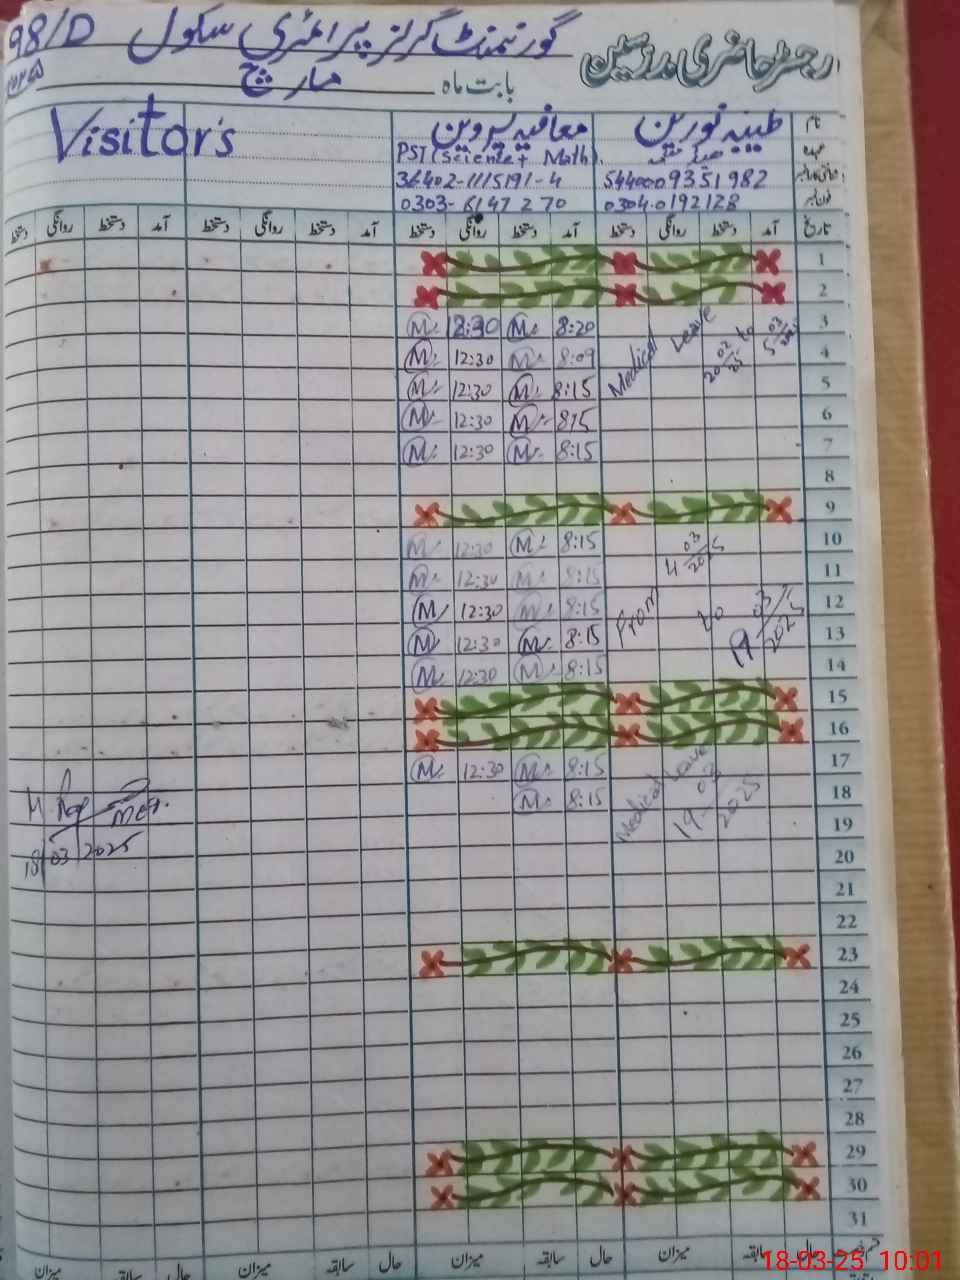 رجسٹر حاضری مدرسین گورنمنٹ گرلز پرائمری سکول 98/D
بابت ماہ مارچ
نام طیبہ نورین معافیہ پروین Visitor's
عہدہ PST (Science + Math)
5440009351982 36402-1115191-4
فون نمبر 0304-0192128 0303-6147270
تاریخ آمد دستخط روانگی دستخط آمد دستخط روانگی دستخط آمد دستخط روانگی دستخط آمد دستخط روانگی دستخط
1
2
3 8:20 M 12:30 M
4 8:09 M 12:30 M
5 8:15 M 12:30 M
Medical Leave 20/02/25 to 5/03/2025
6 8:15 M 12:30 M
7 8:15 M 12:30 M
8
9
10 8:15 M 12:30 M
11 8:15 M 12:30 M
12 8:15 M 12:30 M
13 8:15 M 12:30 M
From 4/03/2025 to 19/03/2025
14 8:15 M 12:30 M
15
16
17 8:15 M 12:30 M
18 8:15 M
Medical Leave 19-03-2025
18/03/2025
19
20
21
22
23
24
25
26
27
28
29
30
31
حال سابقہ میزان حال سابقہ میزان حال سابقہ میزان حال سابقہ میزان
18-03-25 10:01